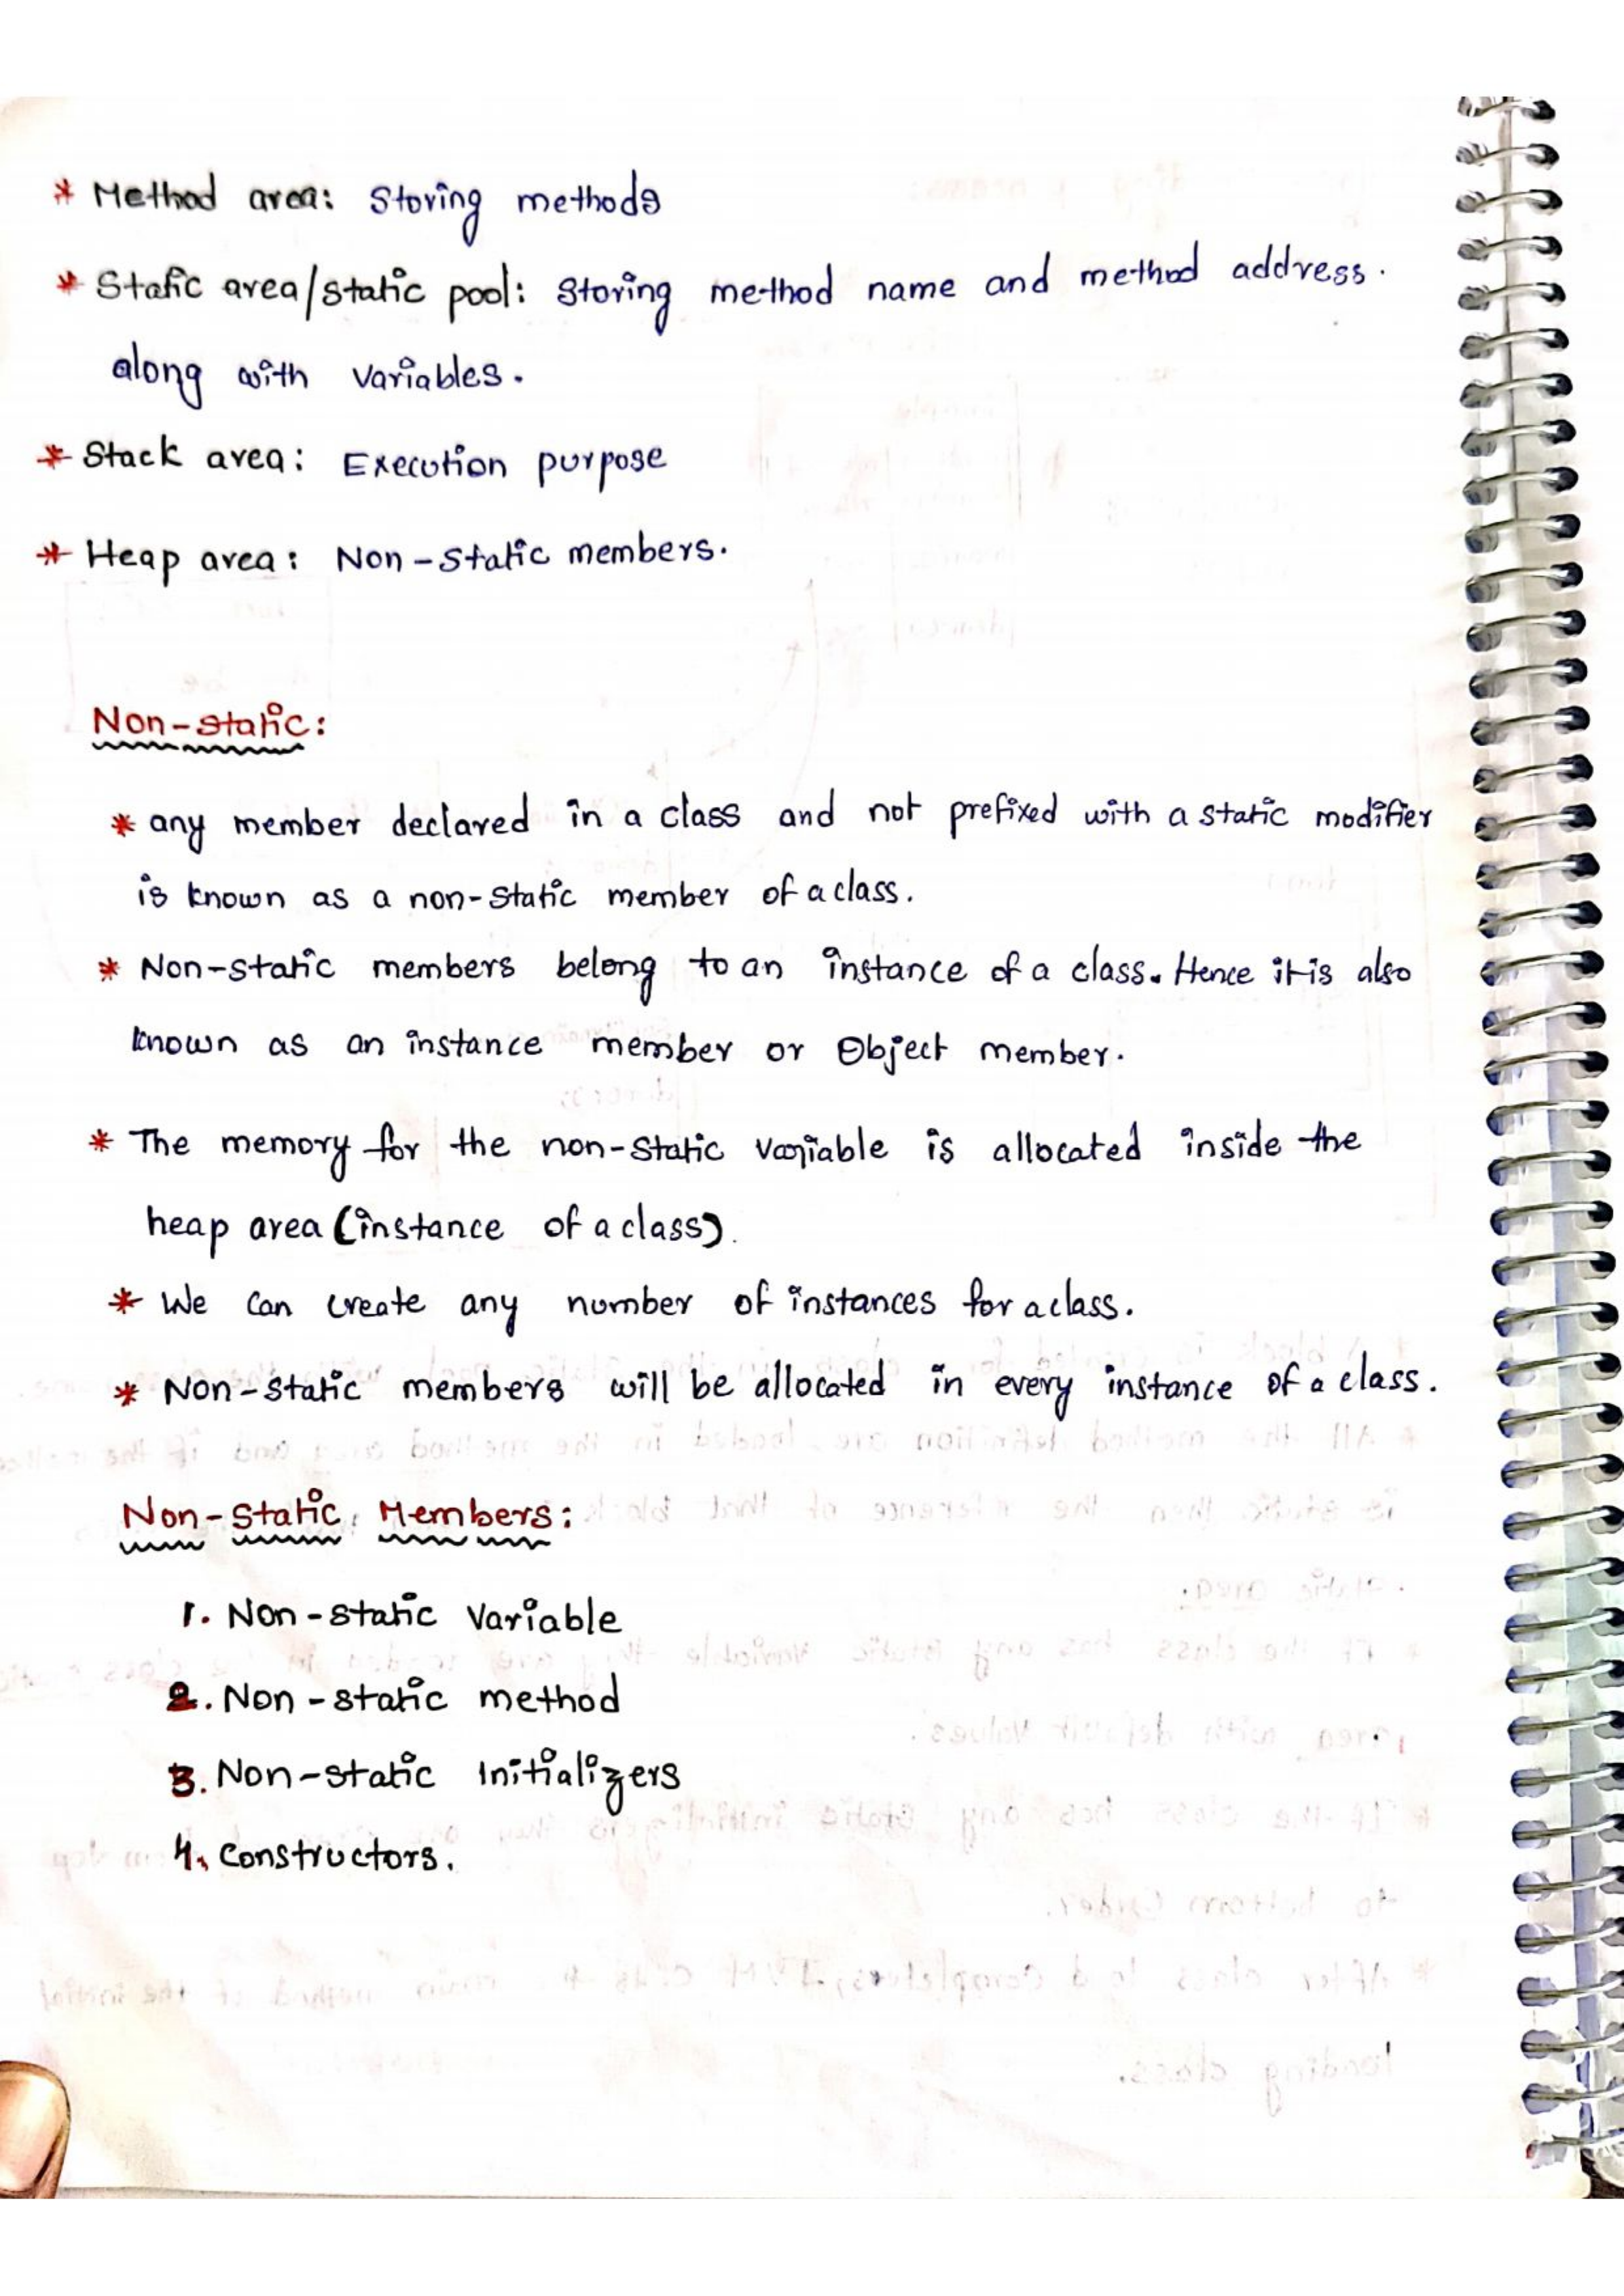 * Method area: Storing methods
* Static area/static pool: Storing method name and method address.
along with variables.
* Stack area: Execution purpose
* Heap area: Non-Static members.
Non-static:
* any member declared in a class and not prefixed with a static modifier
is known as a non-static member of a class.
* Non-static members belong to an instance of a class. Hence it is also
known as an instance member or Object member.
* The memory for the non-static variable is allocated inside the
heap area (instance of a class).
* We can create any number of instances for a class.
* Non-static members will be allocated in every instance of a class.
Non-Static Members:
1. Non-static Variable
2. Non-static method
3. Non-static Initializers
4. Constructors.